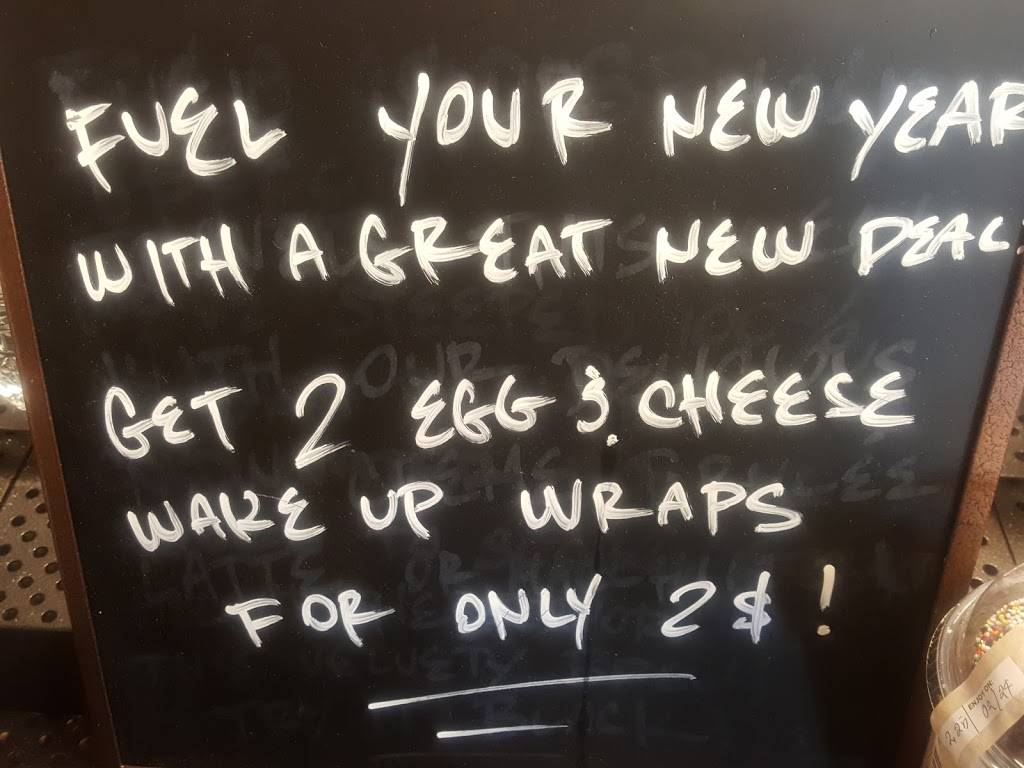 FUEL YOUR NEW YEAR
WITH A GREAT NEW DEAL
GET 2 EGG & CHEESE
WAKE UP WRAPS
FOR ONLY 2$!